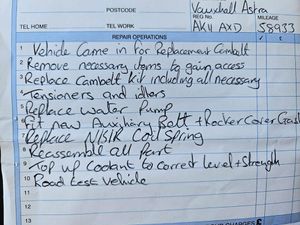 POSTCODE
Vauxhall Astra
TEL HOME
TEL WORK
REG No.
MILEAGE
AK11 AXD
58933
REPAIR OPERATIONS
£
1 Vehicle Came in for Replacement Cambelt
2 Remove necessary items to gain access
3 Replace Cambelt kit including all necessary
4 Tensioners and idlers
5 Replace water pump
6 Fit new Auxiliary Belt + Rocker Cover Gask
7 Replace N/S/R Coil Spring
8 Reassemble all part
9 Top up Coolant to Correct level + Strength
10 Road test vehicle
11
12
13
CHARGES £